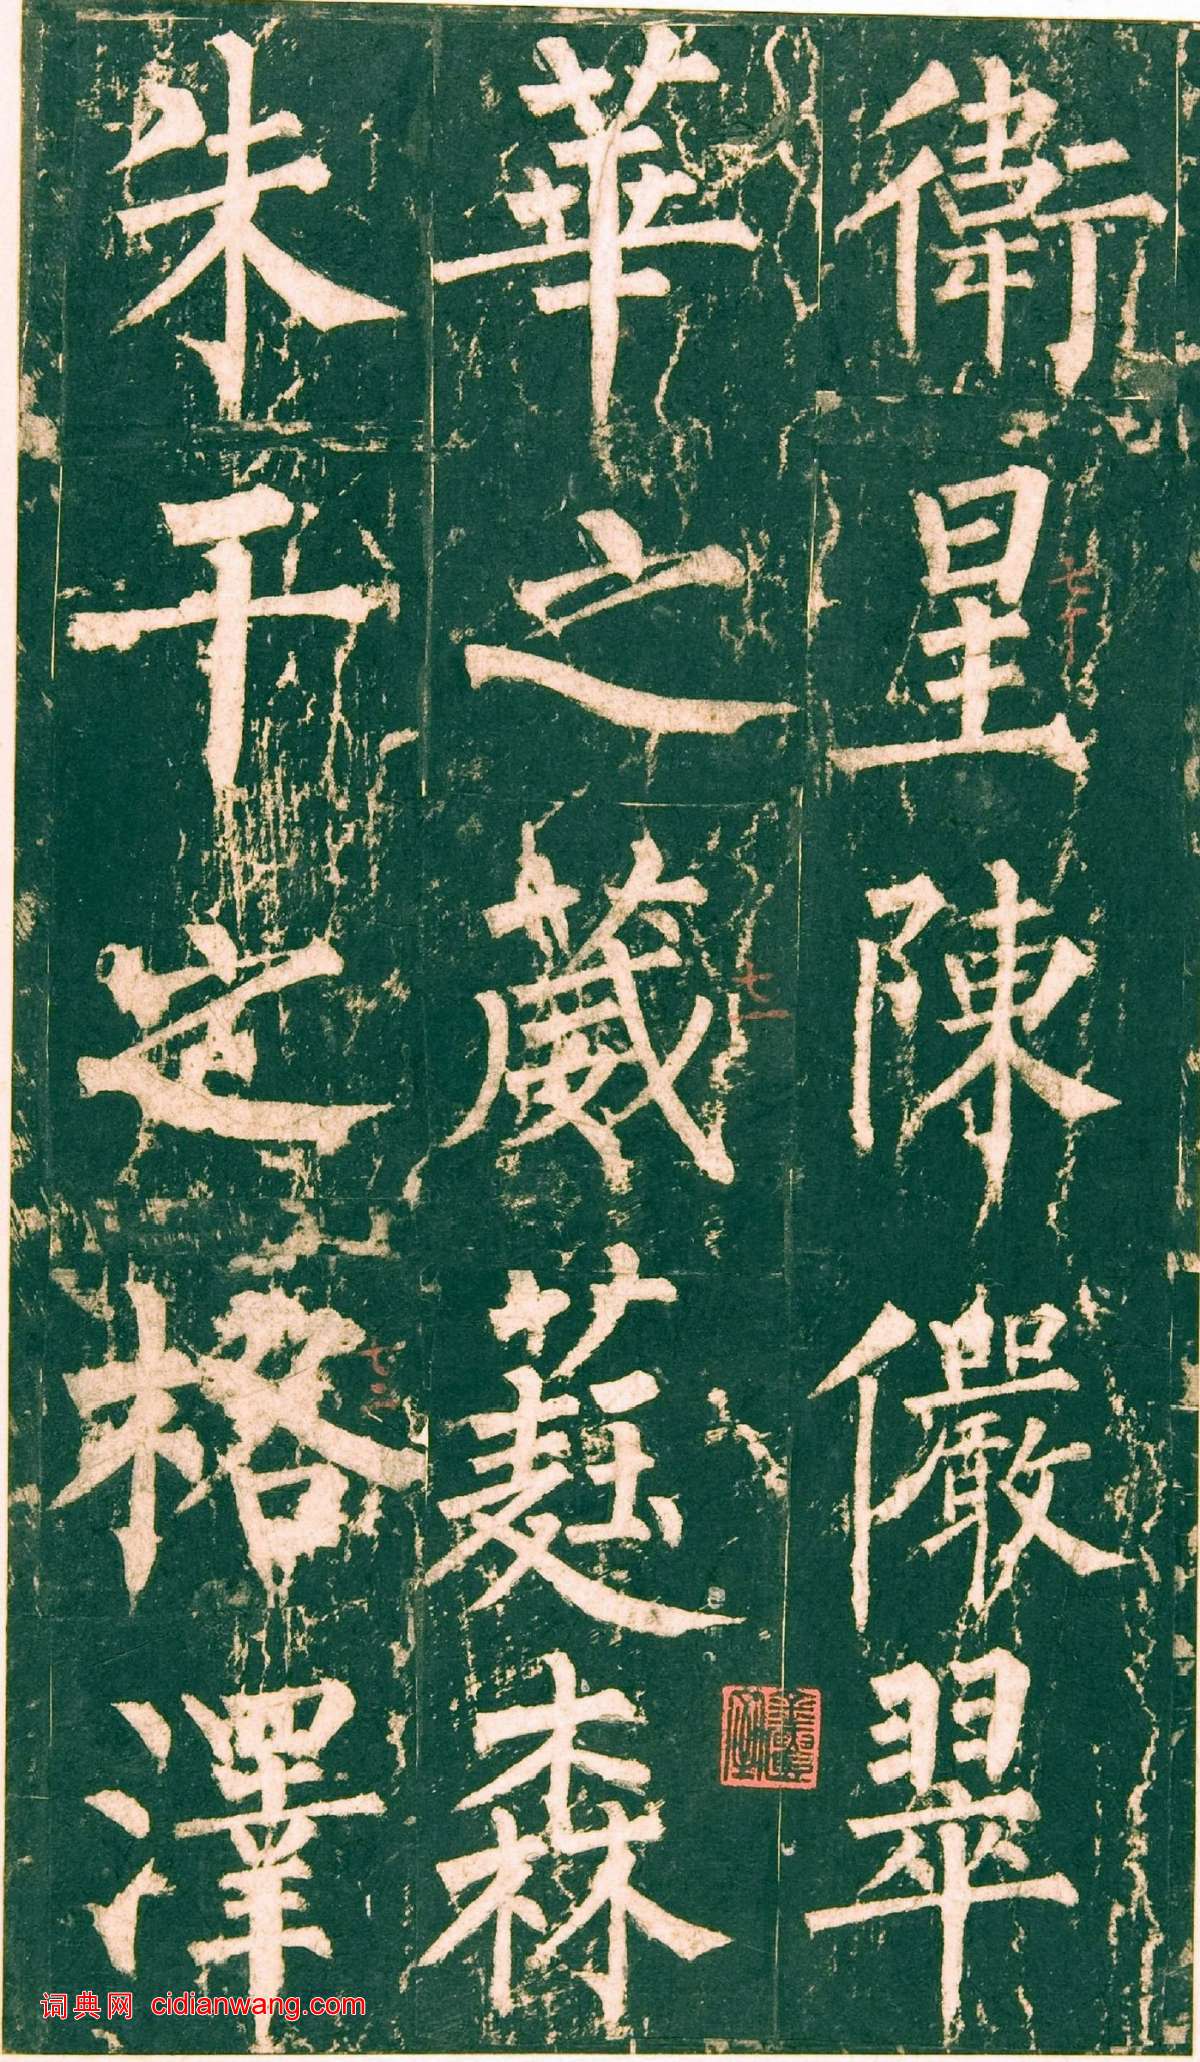 衛星陳儼翠
華之葳蕤森
朱干之格澤
七十
七一
七二
词典网 cidianwang.com